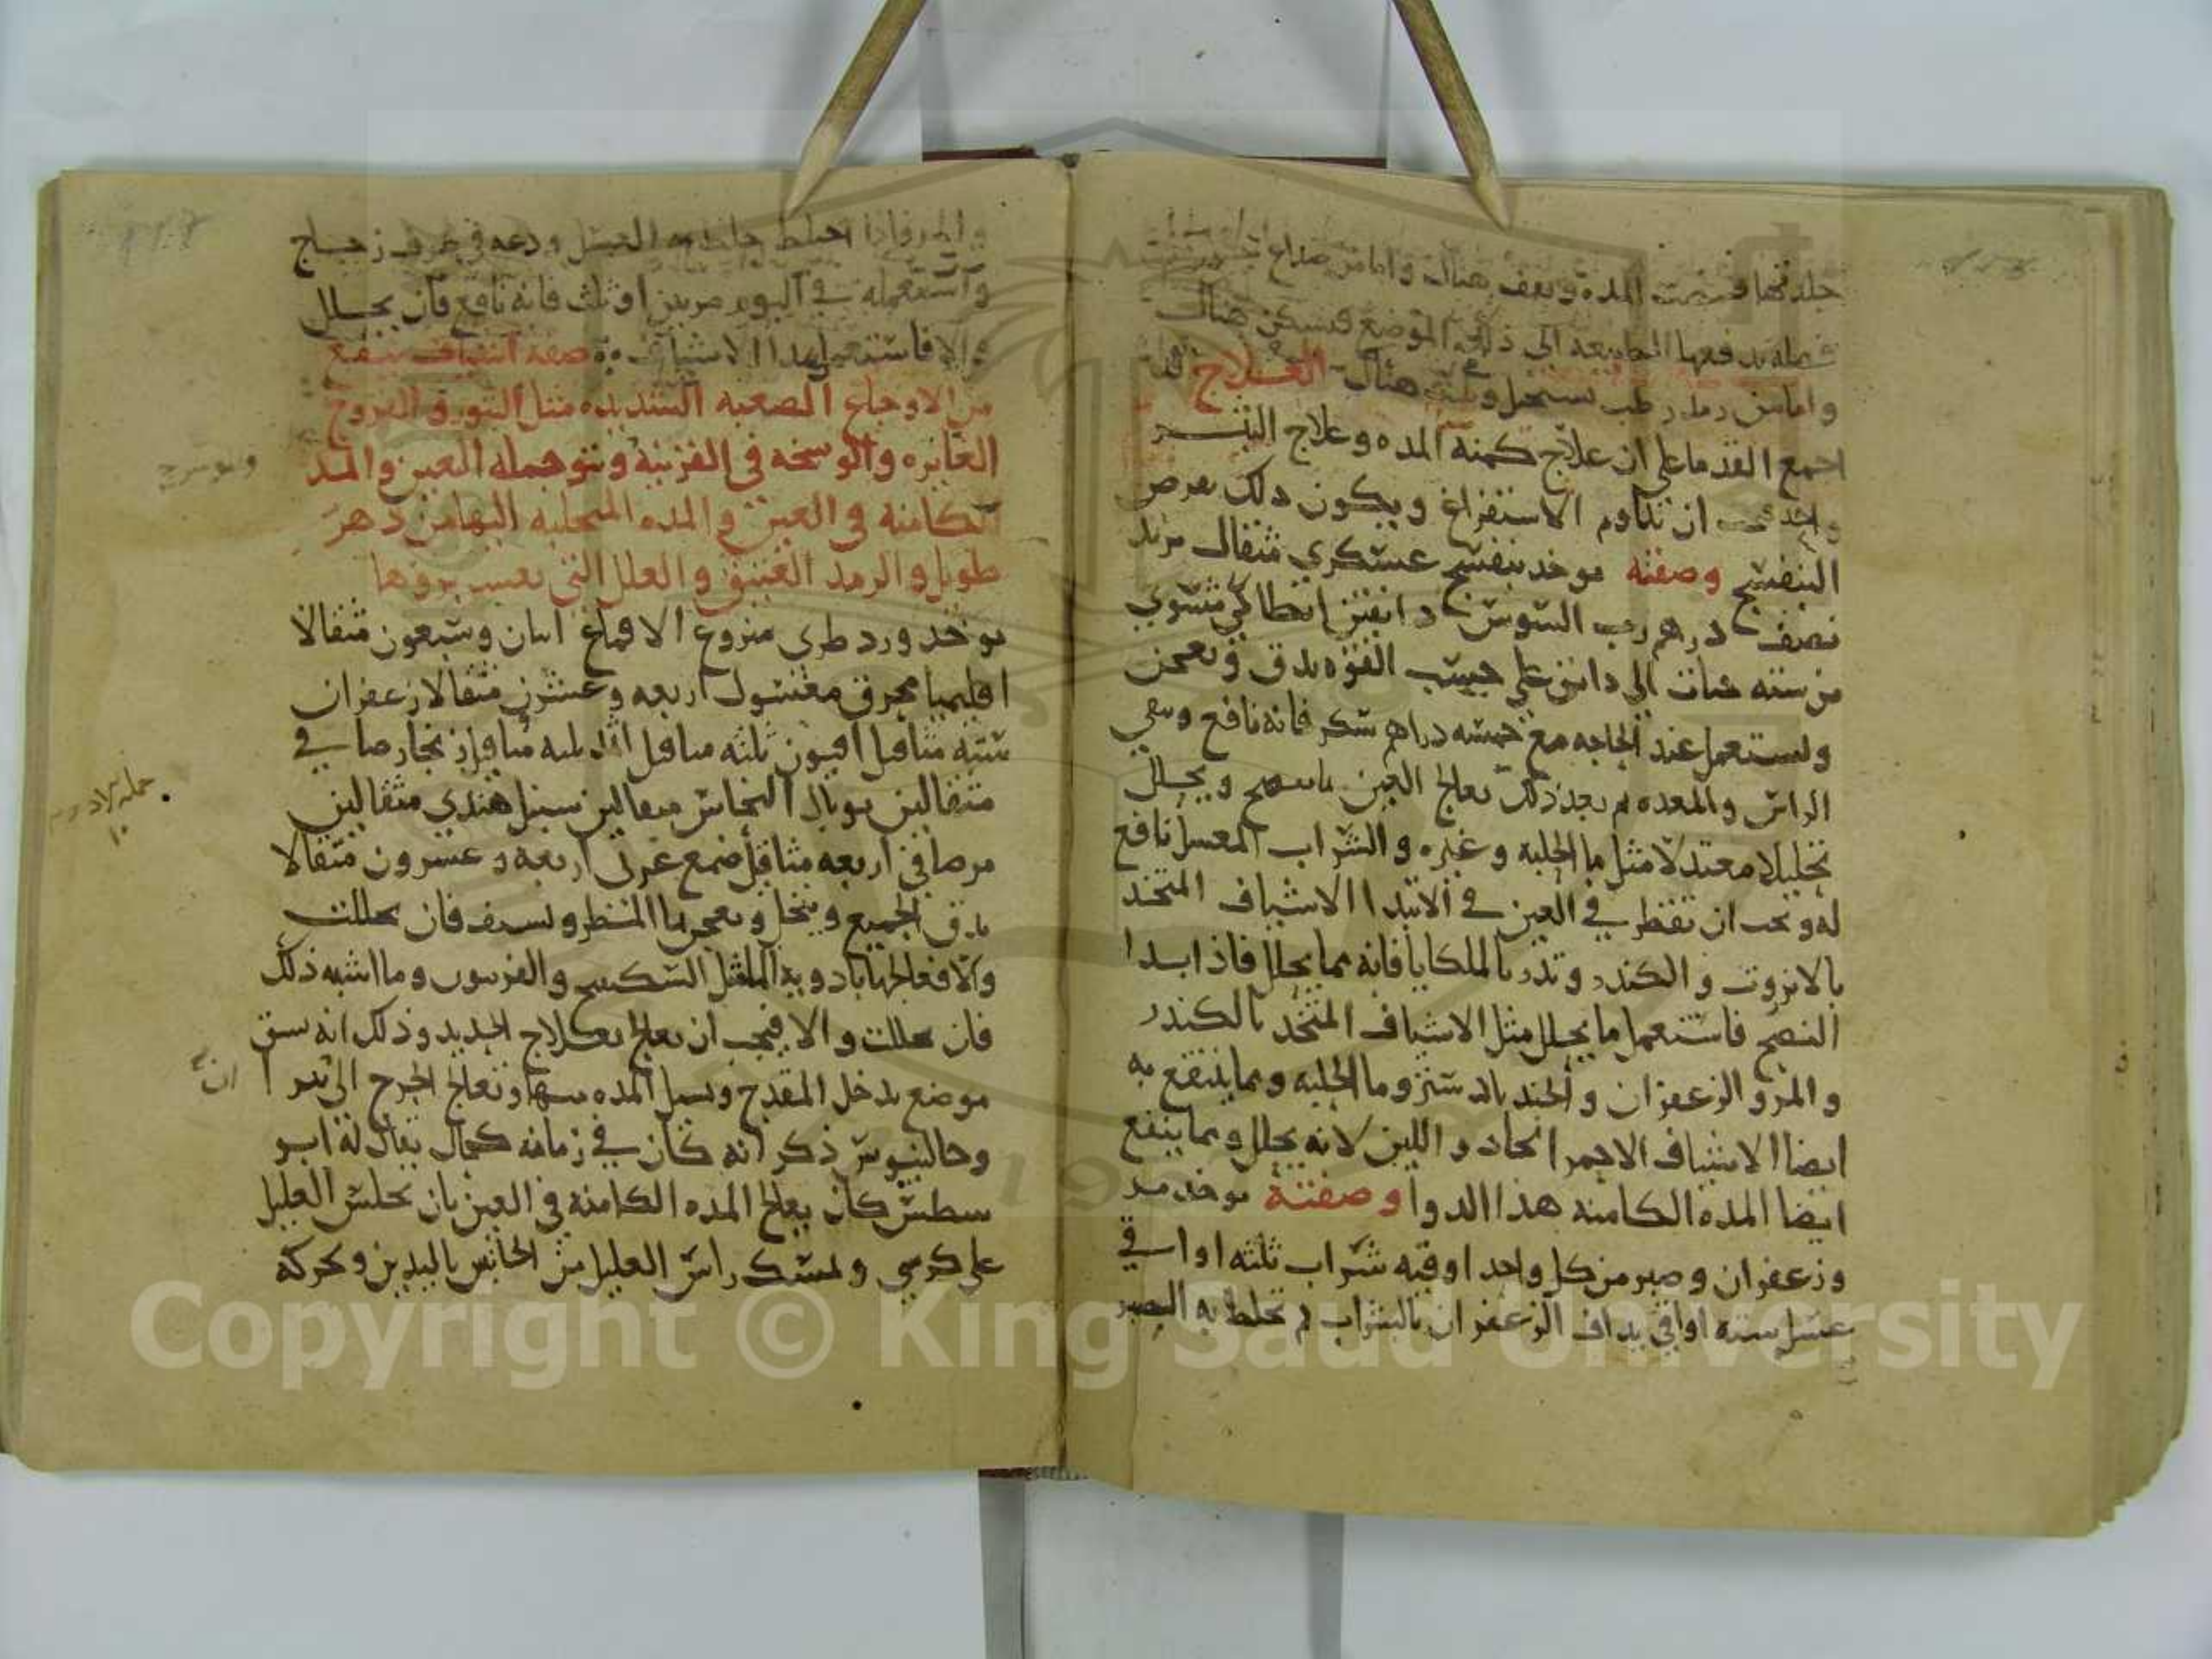 جلدتها المده ويقف هناك واما من صداع
فضله تدفعها الطبيعه الى ذلك الموضع فتسكن هناك
واما من رمد رطب هناك العلاج قد
اجمع القدما على ان علاج كمنه المده وعلاج البثر
واحد يجب ان تداوم الاستفراغ ويكون ذلك بقرص
البنفسج وصفته يوخذ بنفسج عسكري مثقال تربد
نصف درهم رب السوس دانقين انطاكي مشوي
من سته حبات الى دانق على حسب القوه يدق ويعجن
ويستعمل عند الحاجه مع خمسه دراهم سكر فانه نافع وينقي
الراس والمعده ثم بعد ذلك تعالج العين بما ينضج ويحلل
تحليلا معتدلا مثل ما الحلبه وغيره والشراب المعسل نافع
له ويجب ان تقطر في العين في الابتدا الاشياف المتخذ
بالانزروت والكندر وتذر بالملكايا فانه مما يحلل فاذا بدا
النضج فاستعمل ما يحلل مثل الاشياف المتخذ بالكندر
والمر والزعفران والجندبادستر وما الحلبه ومما ينتفع به
ايضا الاشياف الاحمر الحاد واللين لانه يحلل ومما ينفع
ايضا المده الكامنه هذا الدوا وصفته يوخذ مر
وزعفران وصبر من كل واحد اوقيه شراب ثلثه اواقي
عسل سته اواقي يداف الزعفران بالشراب ثم يخلط به الصبر
والمر فاذا اختلط خلط به العسل ودعه في ظرف زجاج
واستعمله في اليوم مرتين او ثلث فانه نافع فان تحلل
والا فاستعمل هذا الاشياف صفه اشياف ينفع
من الاوجاع الصعبه الشديده مثل البثور والقروح
الغايره والوسخه في القرنيه ونتو جمله العين والمده
الكامنه في العين والمده المتحلبه اليها من دهر
طويل والرمد العتيق والعلل التي يعسر بروها
يوخذ ورد طري منزوع الاقماع اثنان وسبعون مثقالا
اقليميا محرق مغسول اربعه وعشرين مثقالا زعفران
سته مثاقيل افيون ثلثه مثاقيل اثمد ثلثه مثاقيل زنجار صافي
مثقالين توبال النحاس مثقالين سنبل هندي مثقالين
مر صافي اربعه مثاقيل ضمغ عربي اربعه وعشرون مثقالا
يدق الجميع وينخل ويعجن بما المطر ويشيف فان تحللت
والا فعالجها بادويه الما مثل السكبينج والفربيون وما اشبه ذلك
فان تحللت والا فيجب ان تعالج بعلاج الحديد وذلك انه يشق
موضع يدخل المقدح وتسيل المده منها وتعالج الجرح الى ان يبرا
وجالينوس ذكر انه كان في زمانه كحال يقال له ابو
سطس كان يعالج المده الكامنه في العين بان يجلس العليل
على كرسي ويمسك راس العليل من الجانبين باليدين ويحركه